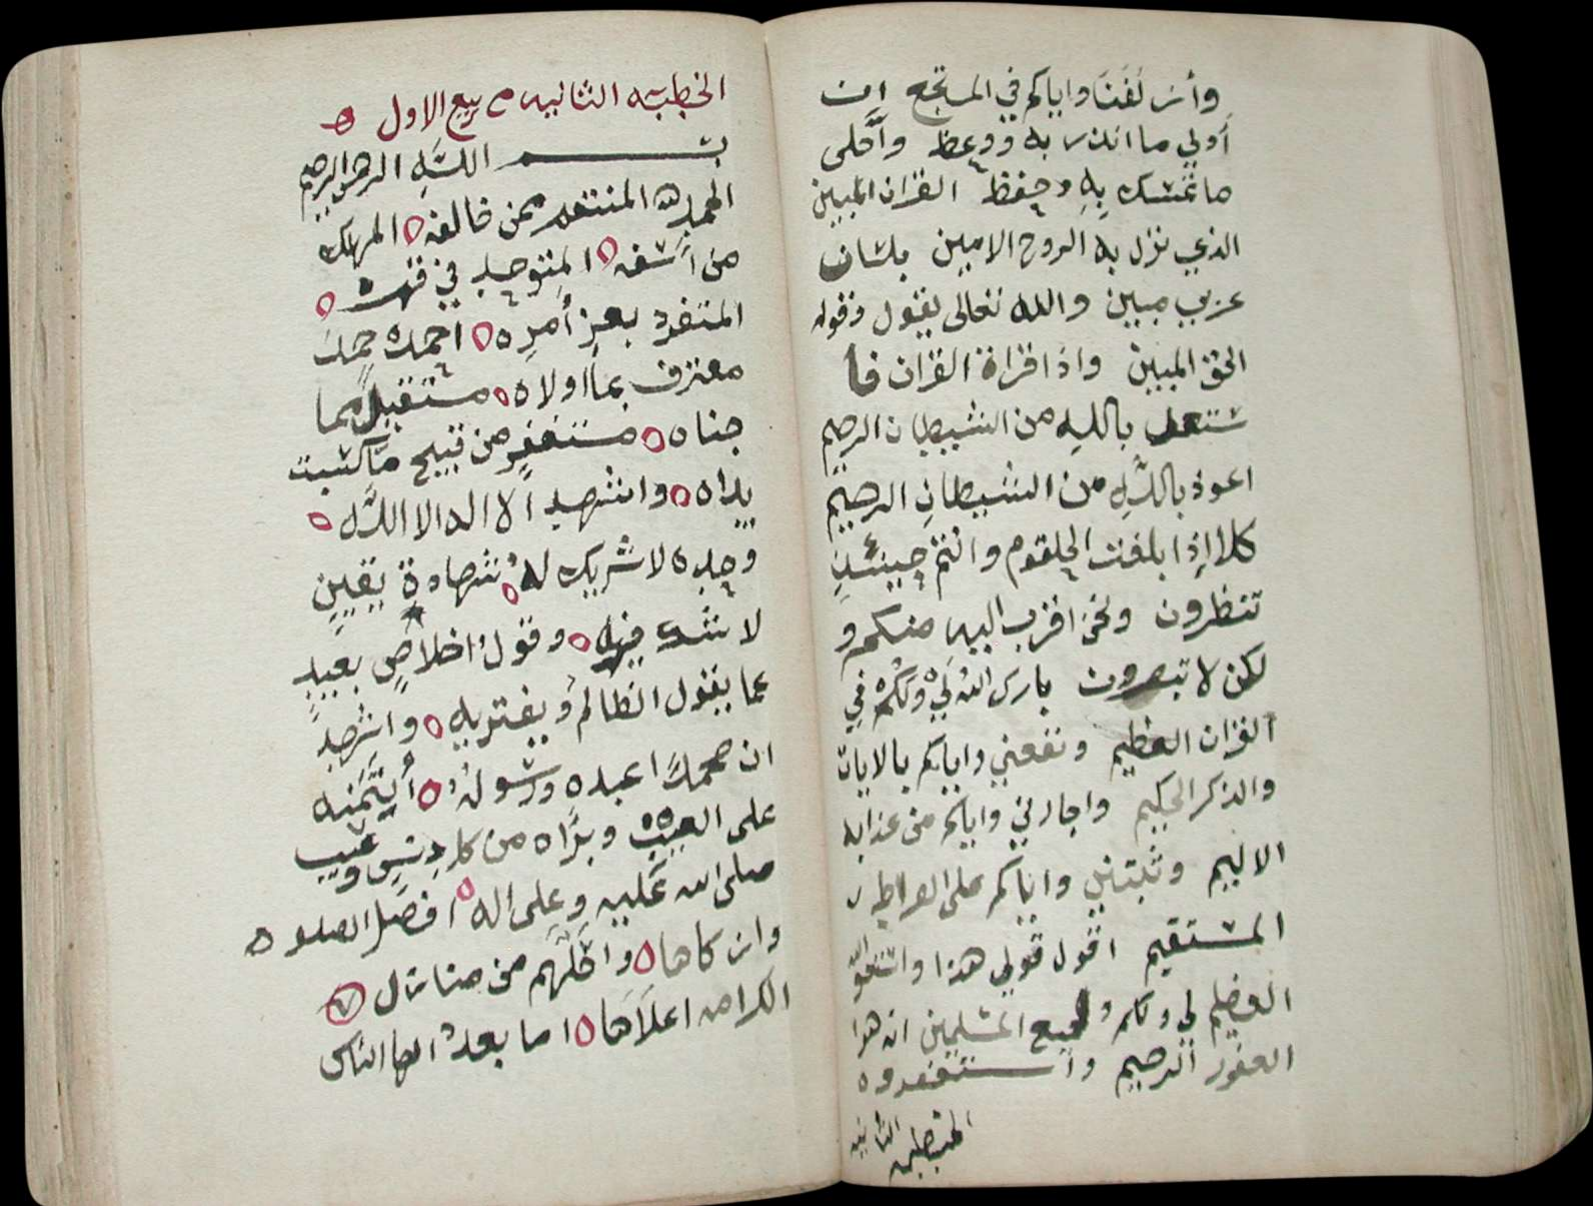 وأسلفنا واياكم في المستجمع ان
أولي ما انذر به ووعظ وأحلى
ما تمسك به وحفظ القران المبين
الذي نزل به الروح الامين بلسان
عربي مبين والله تعالى يقول وقوله
الحق المبين واذا قراة القران فا
ستعذ بالله من الشيطان الرجيم
اعوذ بالله من الشيطان الرجيم
كلا إذا بلغت الحلقوم وانتم حينئذ
تنظرون ونحن اقرب اليه منكم و
لكن لا تبصرون بارك الله لي ولكم في
القران العظيم ونفعني واياكم بالايات
والذكر الحكيم واجارني واياكم من عذابه
الاليم وثبتني واياكم على الصراط
المستقيم اقول قولي هذا واستغفر الله
العظيم لي ولكم ولجميع المسلمين انه هوا
الغفور الرحيم واستغفروه
الخطبه الثانيه
الخطبه الثانيه من ربيع الاول
بسم الله الرحمن الرحيم
الحمد لله المنتقم ممن خالفه المهلك
من آسفه المتوحد في قهره
المتفرد بعز أمره احمده حمد
معترف بما اولاه مستقيل مما
جناه مستغفر من قبيح ما كسبت
يداه واشهد الا اله الا الله
وحده لا شريك له شهادة يقين
لا شك فيه وقول اخلاص بعيد
عما يقول الظالم ويفتريه واشهد
ان محمدا عبده ورسوله أئتمنه
على الغيب وبراه من كل دنس وعيب
صلى الله عليه وعلى اله افضل الصلوه
وازكاها واحلهم من منازل
الكرامه اعلاها اما بعد ايها الناس